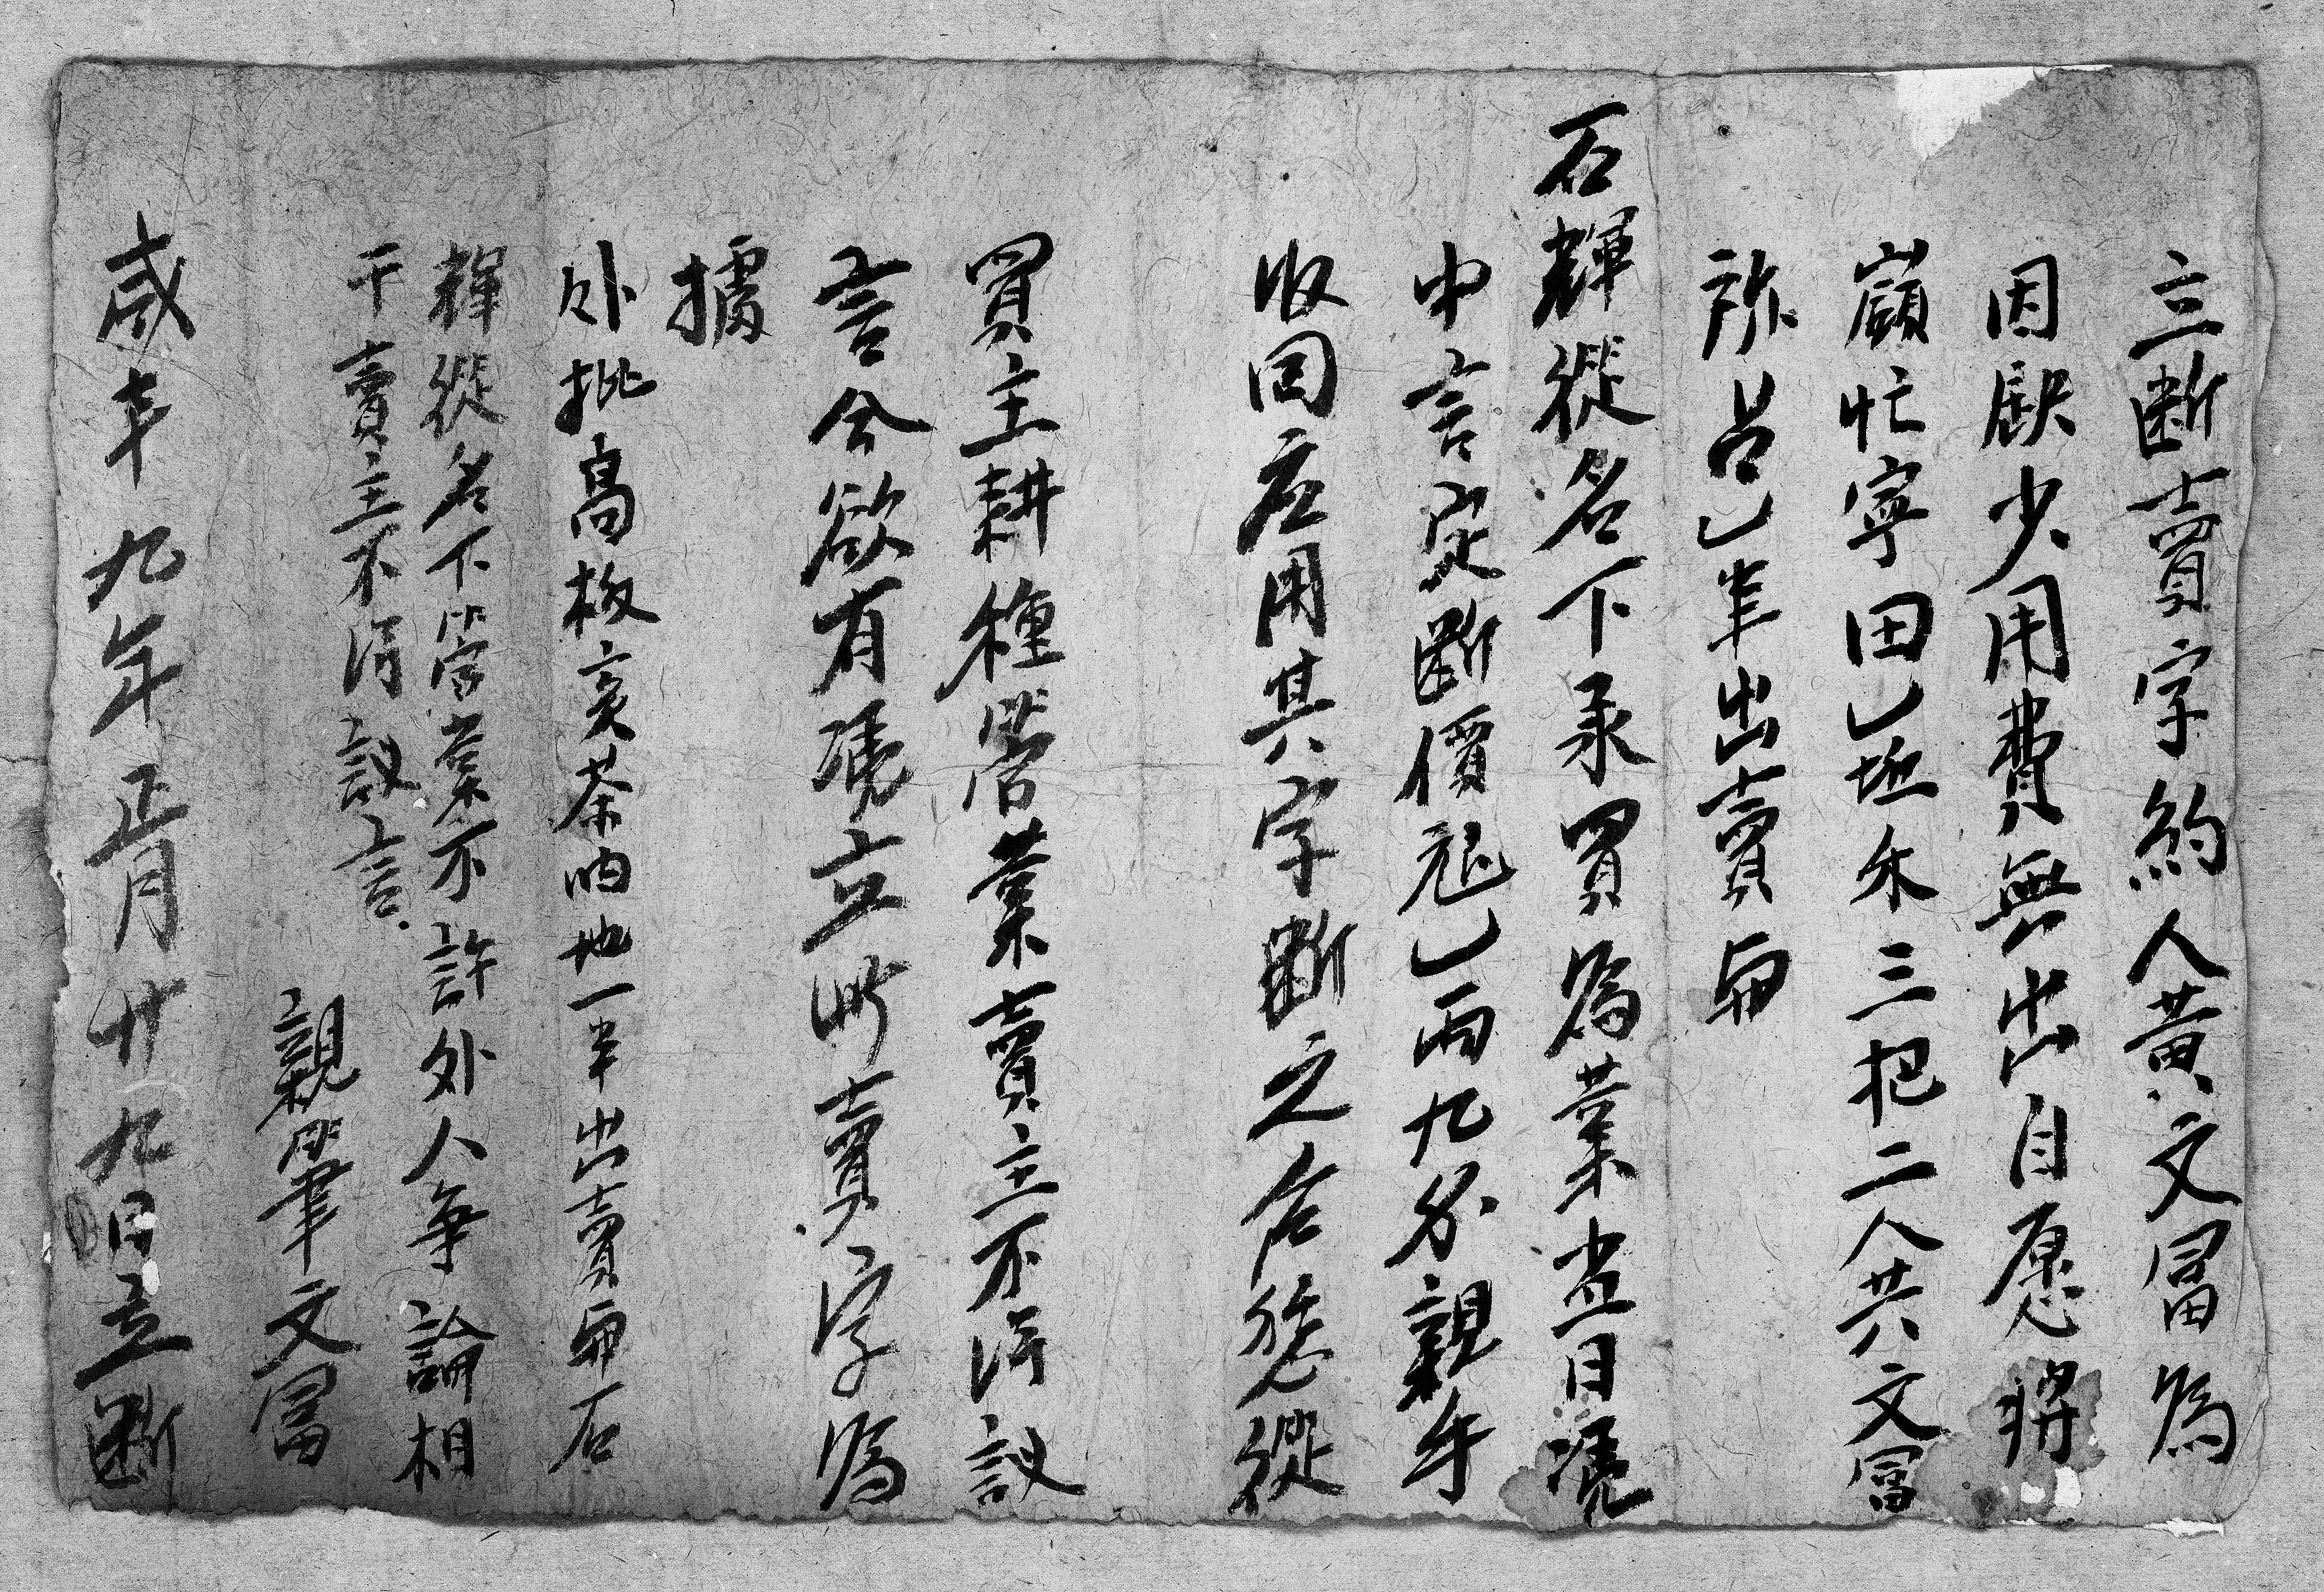 立断賣字約人黃文富為
因缺少用費無出自愿將
嶺忙寧田乚坵禾三把二人共文富
占乚半出賣与
石輝從名下承買為業當日憑
中言定断價元乚両九分親手
收回应用其字断之后悠從
買主耕種管業賣主不得議
言今欲有憑立此賣字為
據
外批高板亥茶山地一半出賣与石
輝從名下管業不許外人争論相
干賣主不得議言
親筆文富
咸丰九年正月廿九日立断